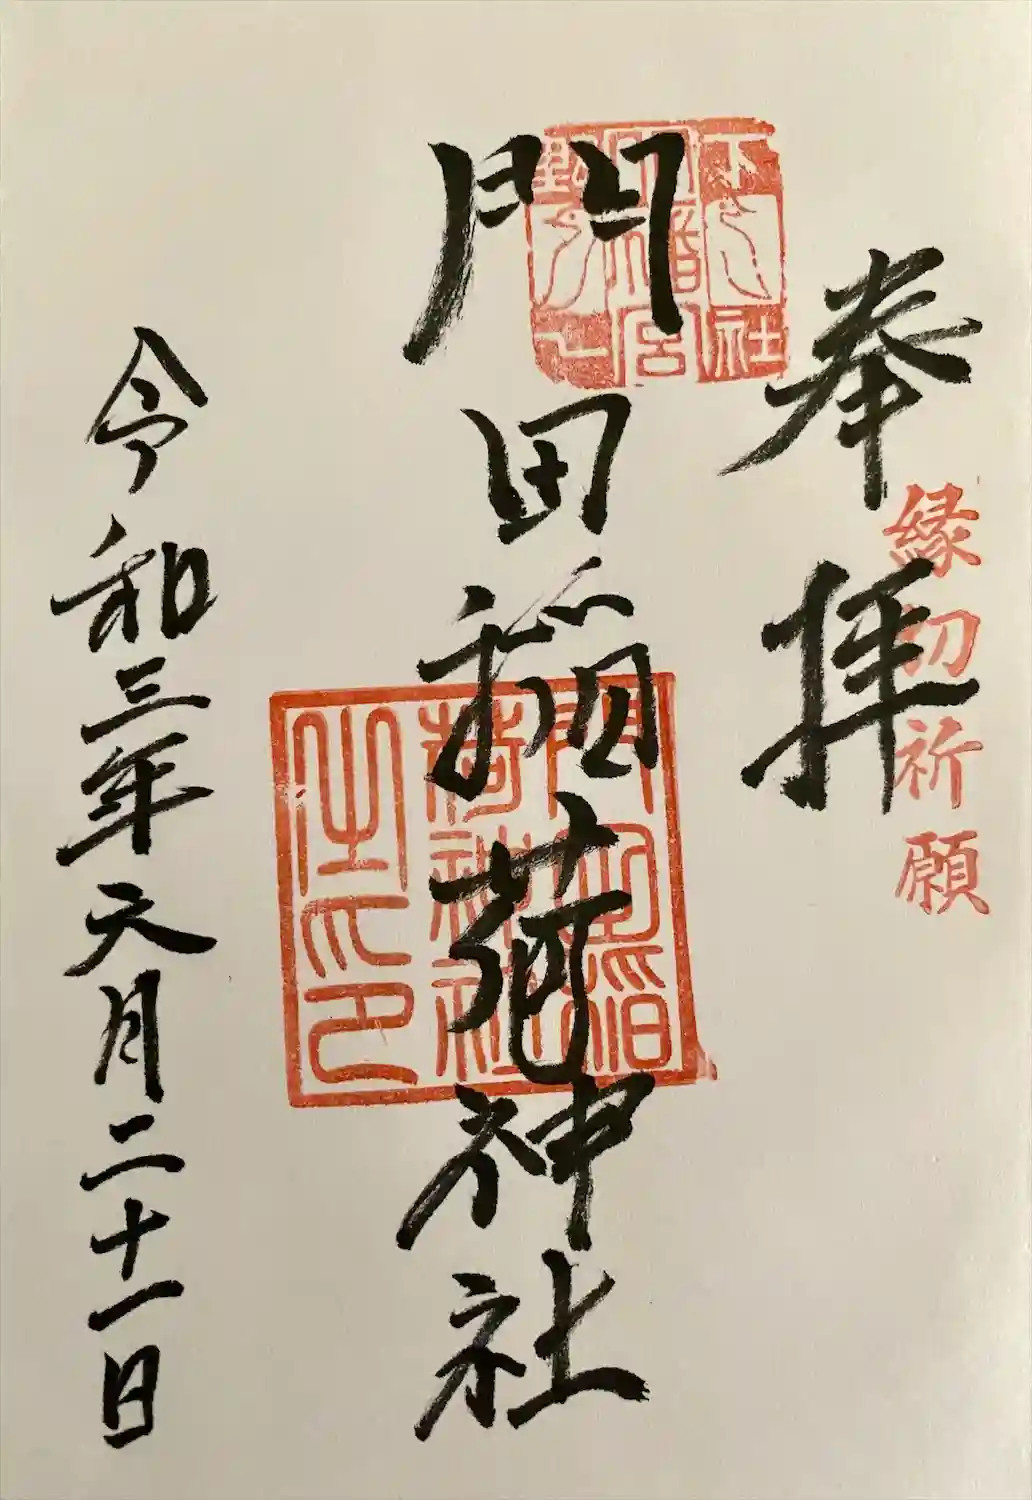 奉拝
縁切祈願
門田稲荷神社
門田稲
荷神社
之印
令和三年元月二十一日